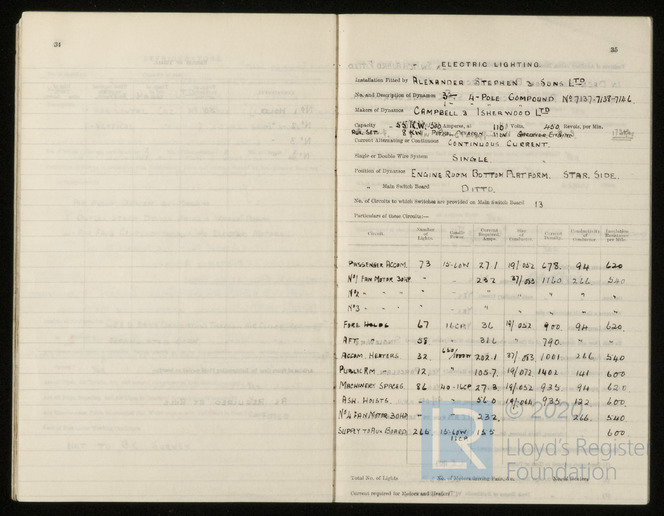 34
35
ELECTRIC LIGHTING.
Installation Fitted by ALEXANDER STEPHEN & SONS LTD
No. and Description of Dynamos 3- 4-POLE COMPOUND
Makers of Dynamos CAMPBELL & ISHERWOOD LTD
Capacity Amperes, at 110 Volts, 450 Revols. per Min.
Current Alternating or Continuous CONTINUOUS CURRENT.
Single or Double Wire System SINGLE.
Position of Dynamos ENGINE ROOM BOTTOM PLATFORM. STAR. SIDE.
" Main Switch Board DITTO.
No. of Circuits to which Switches are provided on Main Switch Board 13
Particulars of these Circuits:—
Circuit Number of Lights Candle Power Current Required Amps. Size of Conductor Current Density Conductivity of Conductor Insulation Resistance per Mile
PASSENGER ACCOM. 73 15-60W 27.1 19/.052 678. 94 620
No1 FAN MOTOR 30HP. - - 232 37/.083 1160 266 540
No2 - - - " " " " "
No3 - - - " " " " "
FORE HOLDS 67 16CP 36 19/.052 900 94 620
AFT " 58 " 31.6 " 790 " "
ACCOM. HEATERS 32 202.1 37/.083 1001 266 540
PUBLIC RM 12 105.7 19/.072 1402 141 600
MACHINERY SPACES. 86 40-16CP 27.3 19/.052 935 94 620
ASH. HOISTS. - - 56.0 935 122 600
No4 FAN MOTOR 30HP - 232 266 540
SUPPLY TO AUX BOARD 15-60W 600
16CP
© 2020
LR
Lloyd's Register
Foundation
Total No. of Lights
Current required for Motors and Heaters